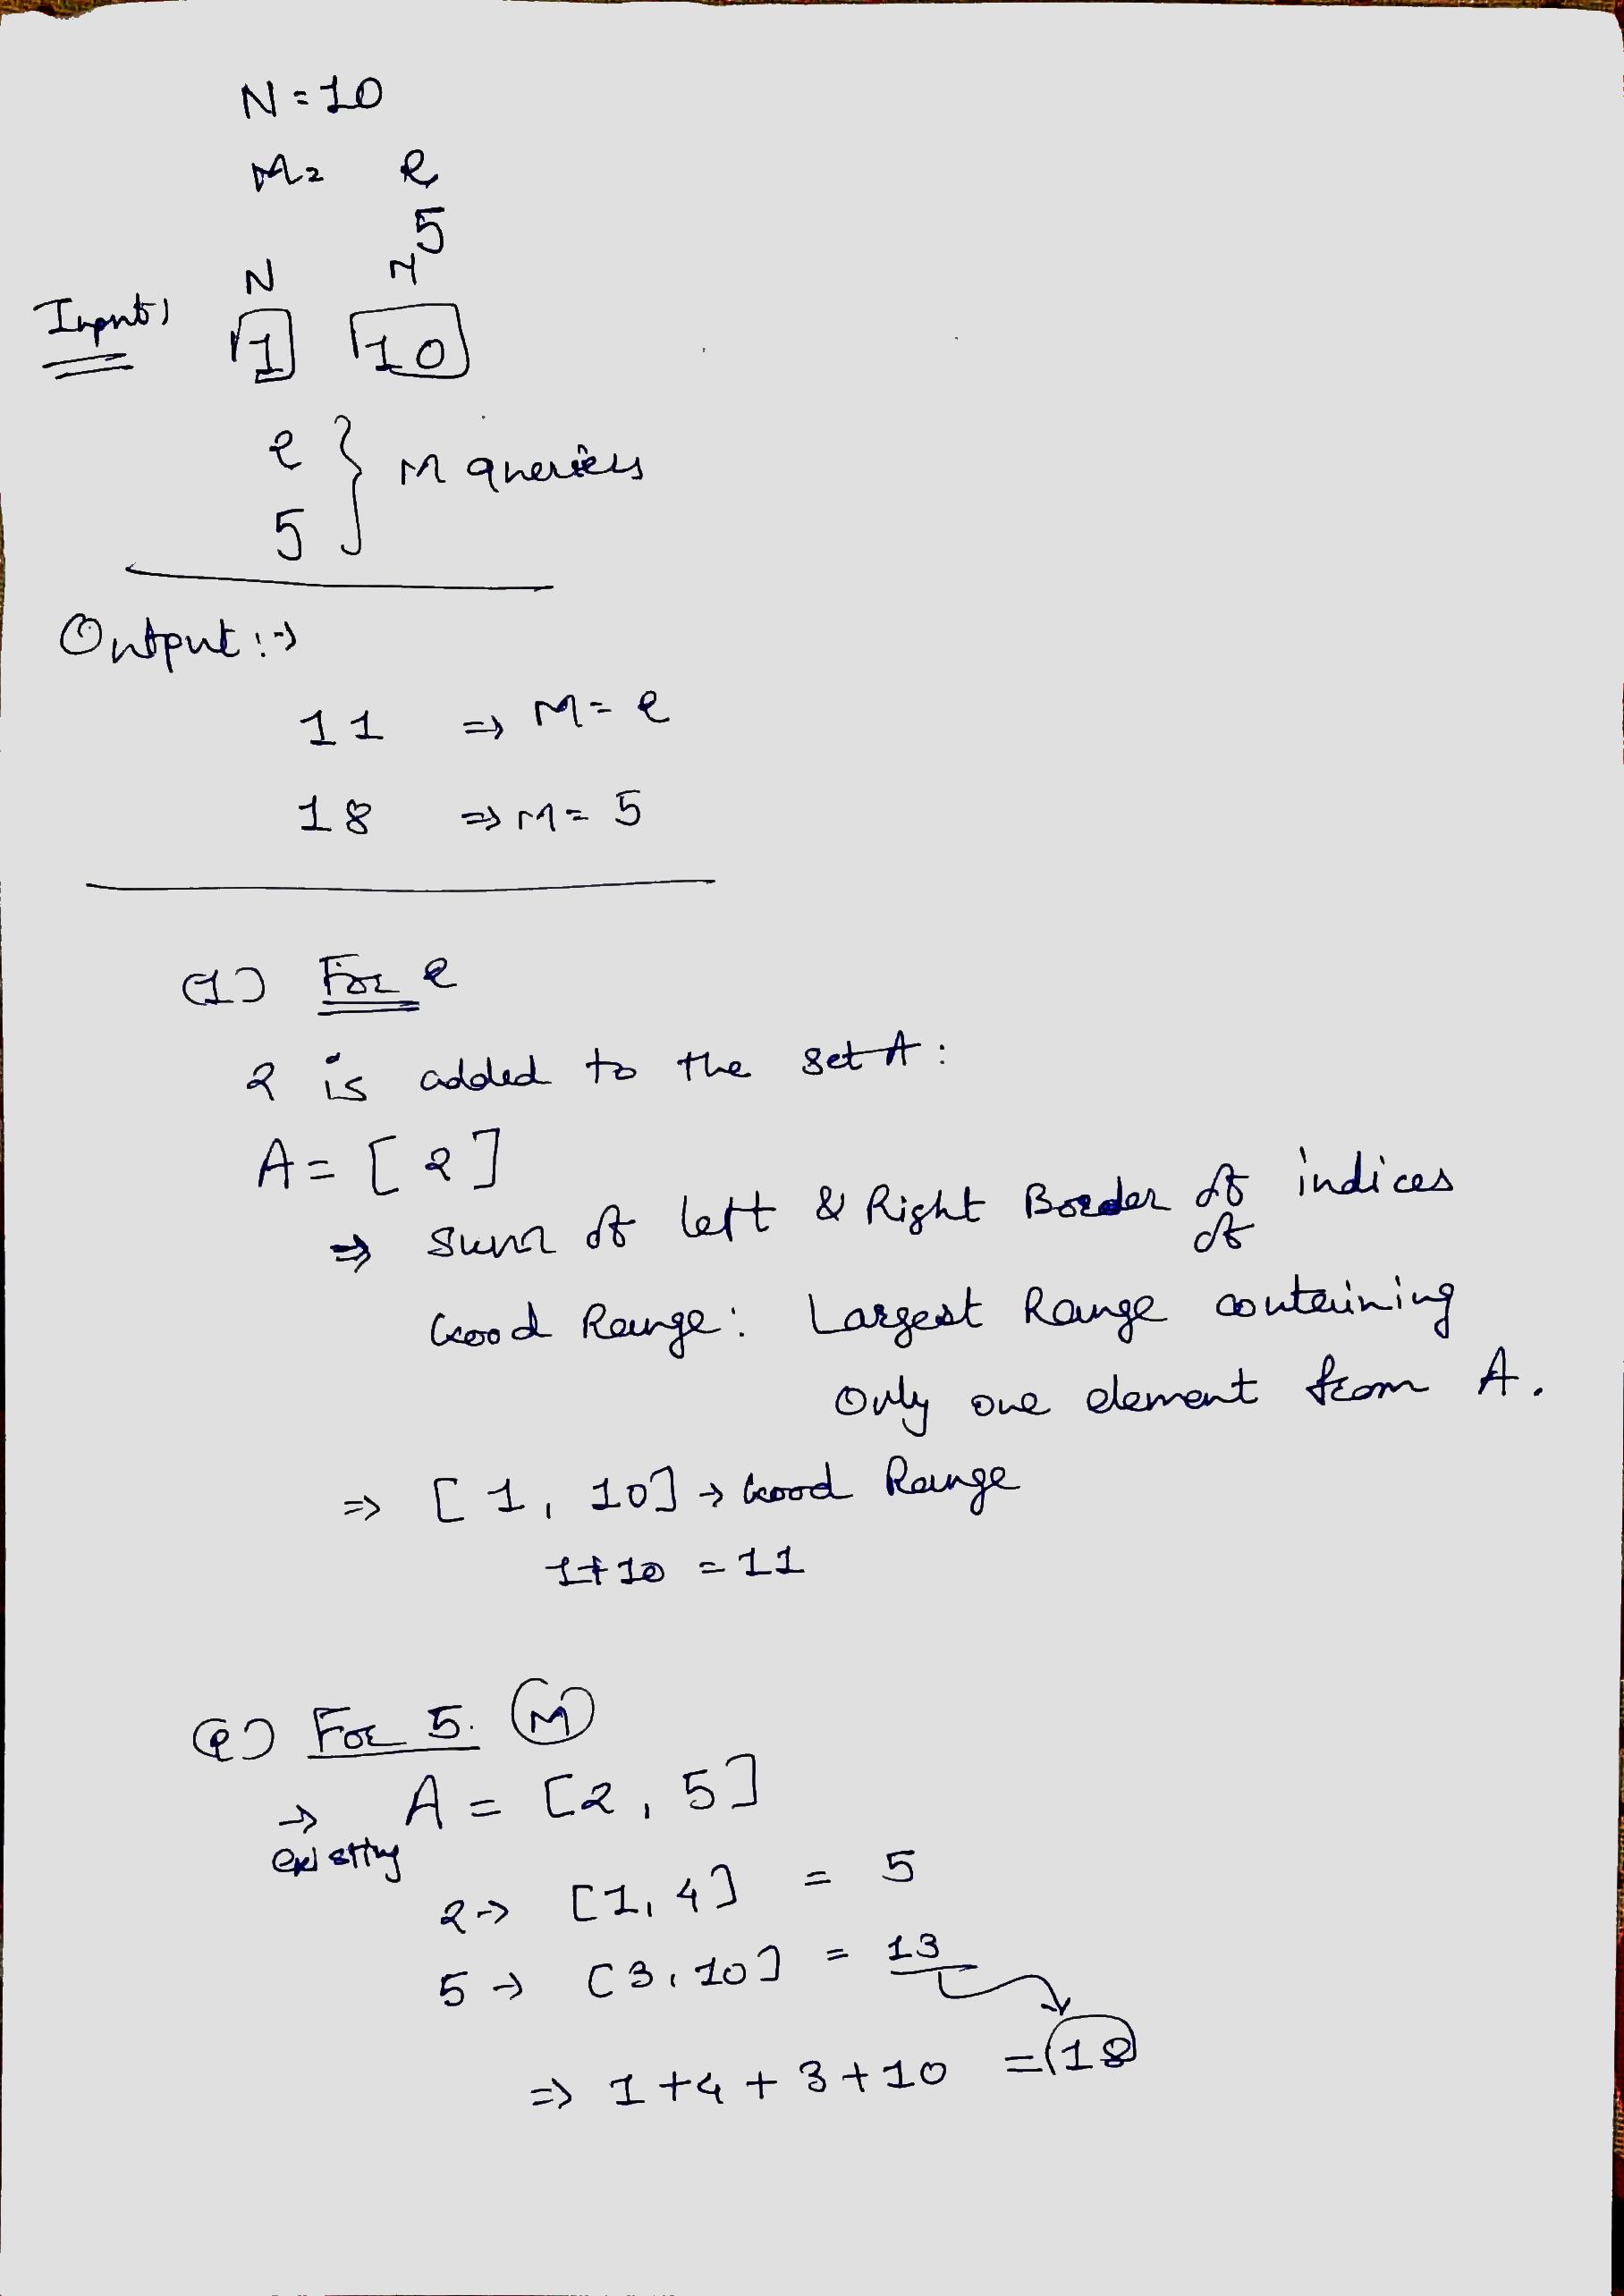 N=10
M= 2
5
N M
Input: 1 10
2
5 } M queries
Output :→
11 ⇒ M= 2
18 ⇒ M= 5
(1) For 2
2 is added to the set A:
A= [2]
⇒ Sum of left & Right Border of indices
of
Good Range: Largest Range containing
Only one element from A.
⇒ [1, 10] → Good Range
1+10 = 11
(2) For 5. (M)
→ A = [2, 5]
existing
2→ [1, 4] = 5
5→ [3, 10] = 13
⇒ 1+4+3+10 = 18